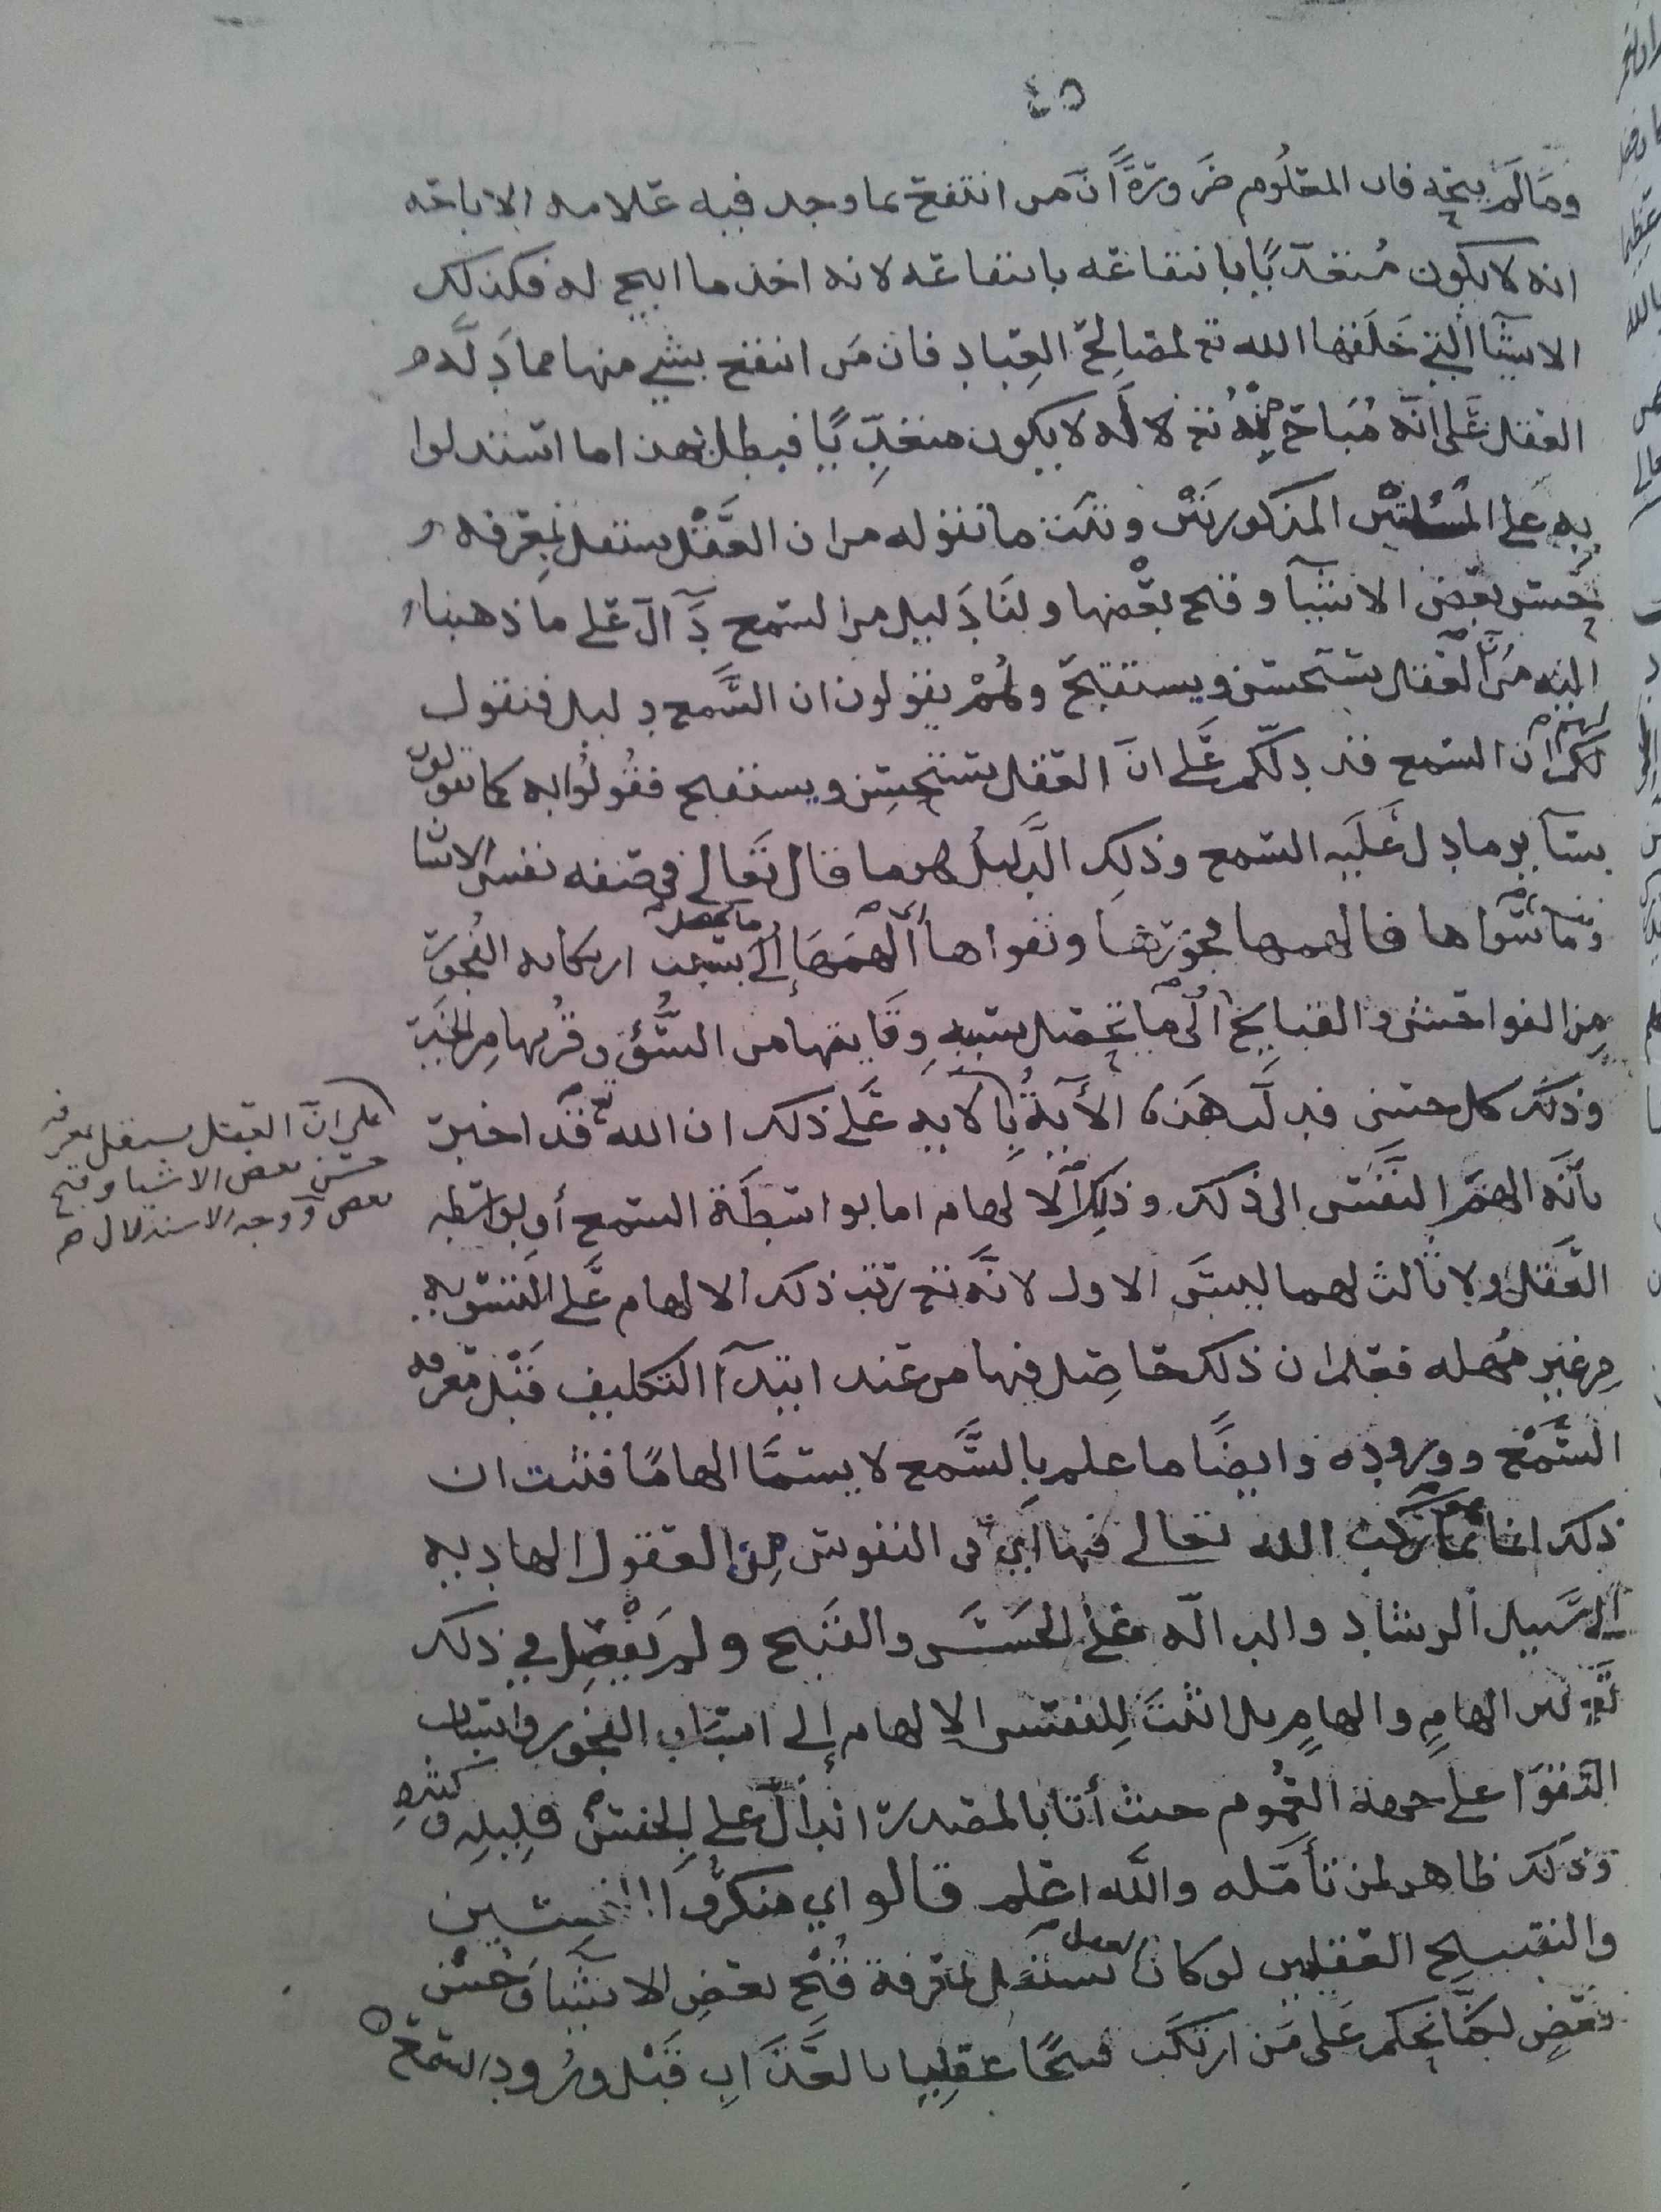 ٤٥
وما لم يبحه فان المعلوم ضرورة أن من انتفع بما وجد فيه علامه الاباحه
انه لا يكون متعديا بانتفاعه بانتفاعه لانه اخذ ما ابيح له فكذلك
الاشيا التي خلقها الله تع لمصالح العباد فان من انتفع بشي منها مما دله
العقل على انه مباح منه تع لا له لا يكون متعديا فبطل بهذا ما استدلوا
به على المسئلتين المذكورتين وثبت ما نقوله من ان العقل يستقل بمعرفه
حسن بعض الاشيا وقبح بعضها ولنا دليل من السمع دآل على ما ذهبنا
اليه من أن العقل يستحسن ويستقبح وهم يقولون ان السمع دليل فنقول
لهم ان السمع قد دلكم على ان العقل يستحسن ويستقبح فقولوا به كما تقولون
بسآير ما دل عليه السمع وذلك الدليل هو ما قال تعالى في صفه نفس الانسان
وما سواها فالهمها فجورها وتقواها ألهمها إلى ما يحصل بسبب ارتكابه الفجور
من الفواحش والقبايح الى ما تحصل بسببه وقايتها من السوء وقربها من الخير
وذلك كل حسن فدلت هذه الأية بالابيه على ذلك ان الله تع قد اخبر
بأنه الهم النفس الى ذلك وذلك الالهام اما بواسطة السمع أو بواسطه
العقل ولا ثالث لهما ليس الاول لانه تع رتب ذلك الالهام على التسويه
من غير مهله فعلم ان ذلك حاصل فيها من عند ابتدآ التكليف قبل معرفه
السمع ووروده وايضا ما علم بالسمع لا يسمى الهاما فثبت ان
ذلك انما هو بما ركب الله تعالى فيها أي في النفوس من العقول الهاديه
إلى سبيل الرشاد والدالة على الحسن والقبح ولم يفصل في ذلك
تع بين الهام والهام بل اثبت للنفس الالهام إلى اجتناب الفجور واتيان
التقوا على جهة العموم حيث أتا بالمصدر الدال على الجنس قليله وكثيره
وذلك ظاهر لمن تأمله والله اعلم قالوا اي منكروا التحسين
والتقبيح العقليين لو كان العقل يستقل بمعرفة قبح بعض الاشيا وحسن
بعض لكنا نحكم على من ارتكب قبحا عقليا بالعذاب قبل ورود السمع
على ان العقل يستقل بمعرفه
حسن بعض الاشيا وقبح
بعض ووجه الاستدلال صح